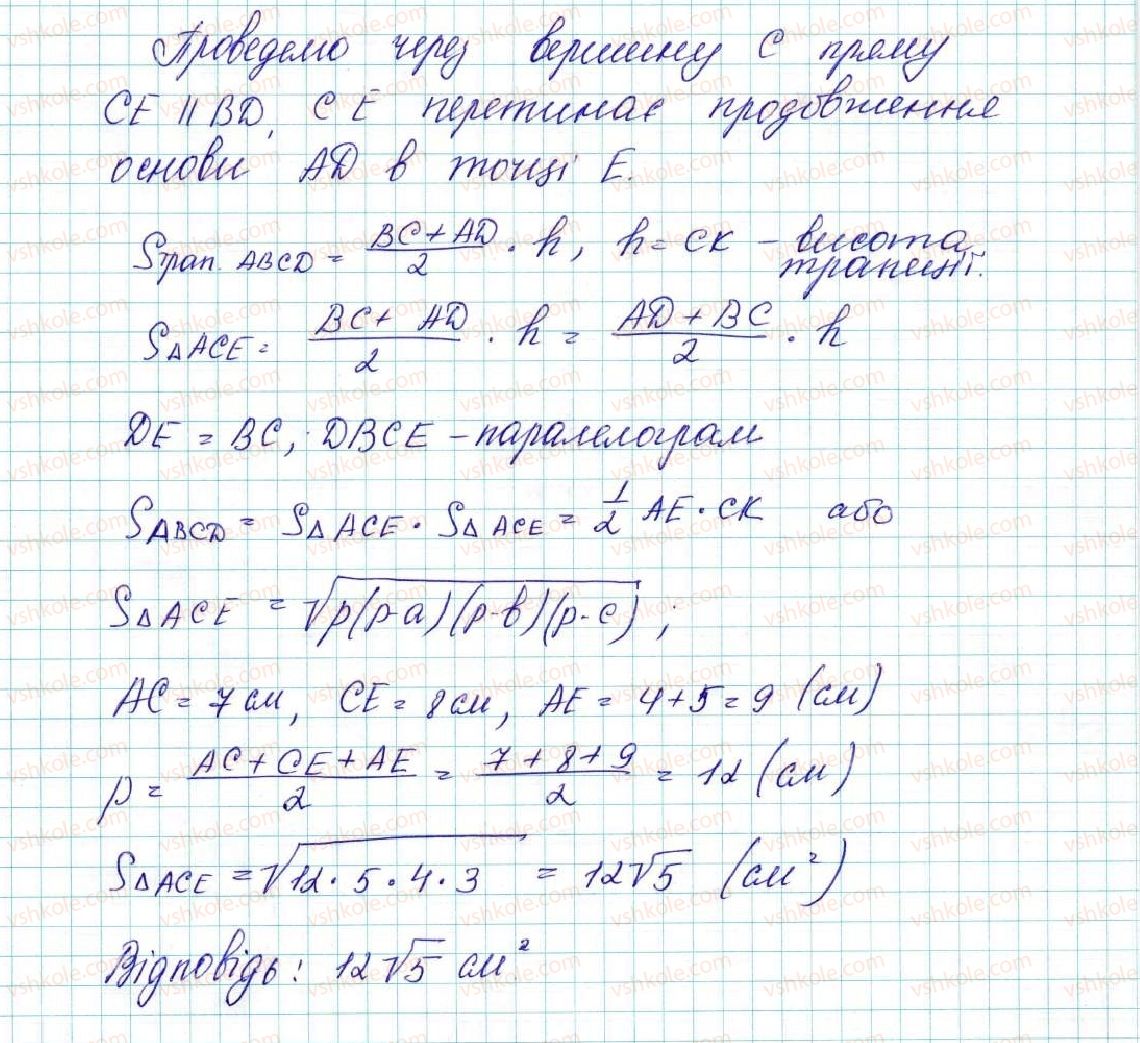 Проведемо через вершину C пряму
CE || BD, CE перетинає продовження
основи AD в точці E.
Sтрап. ABCD = (BC + AD)/2 · h, h = CK – висота трапеції.
S△ACE = (BC + AD)/2 · h = (AD + BC)/2 · h
DE = BC, DBCE – паралелограм
SABCD = S△ACE · S△ACE = 1/2 AE · CK або
S△ACE = √p(p-a)(p-в)(p-c) ;
AC = 7 см, CE = 8 см, AE = 4 + 5 = 9 (см)
p = (AC + CE + AE)/2 = (7 + 8 + 9)/2 = 12 (см)
S△ACE = √12 · 5 · 4 · 3 = 12√5 (см²)
Відповідь: 12√5 см²
vshkole.com